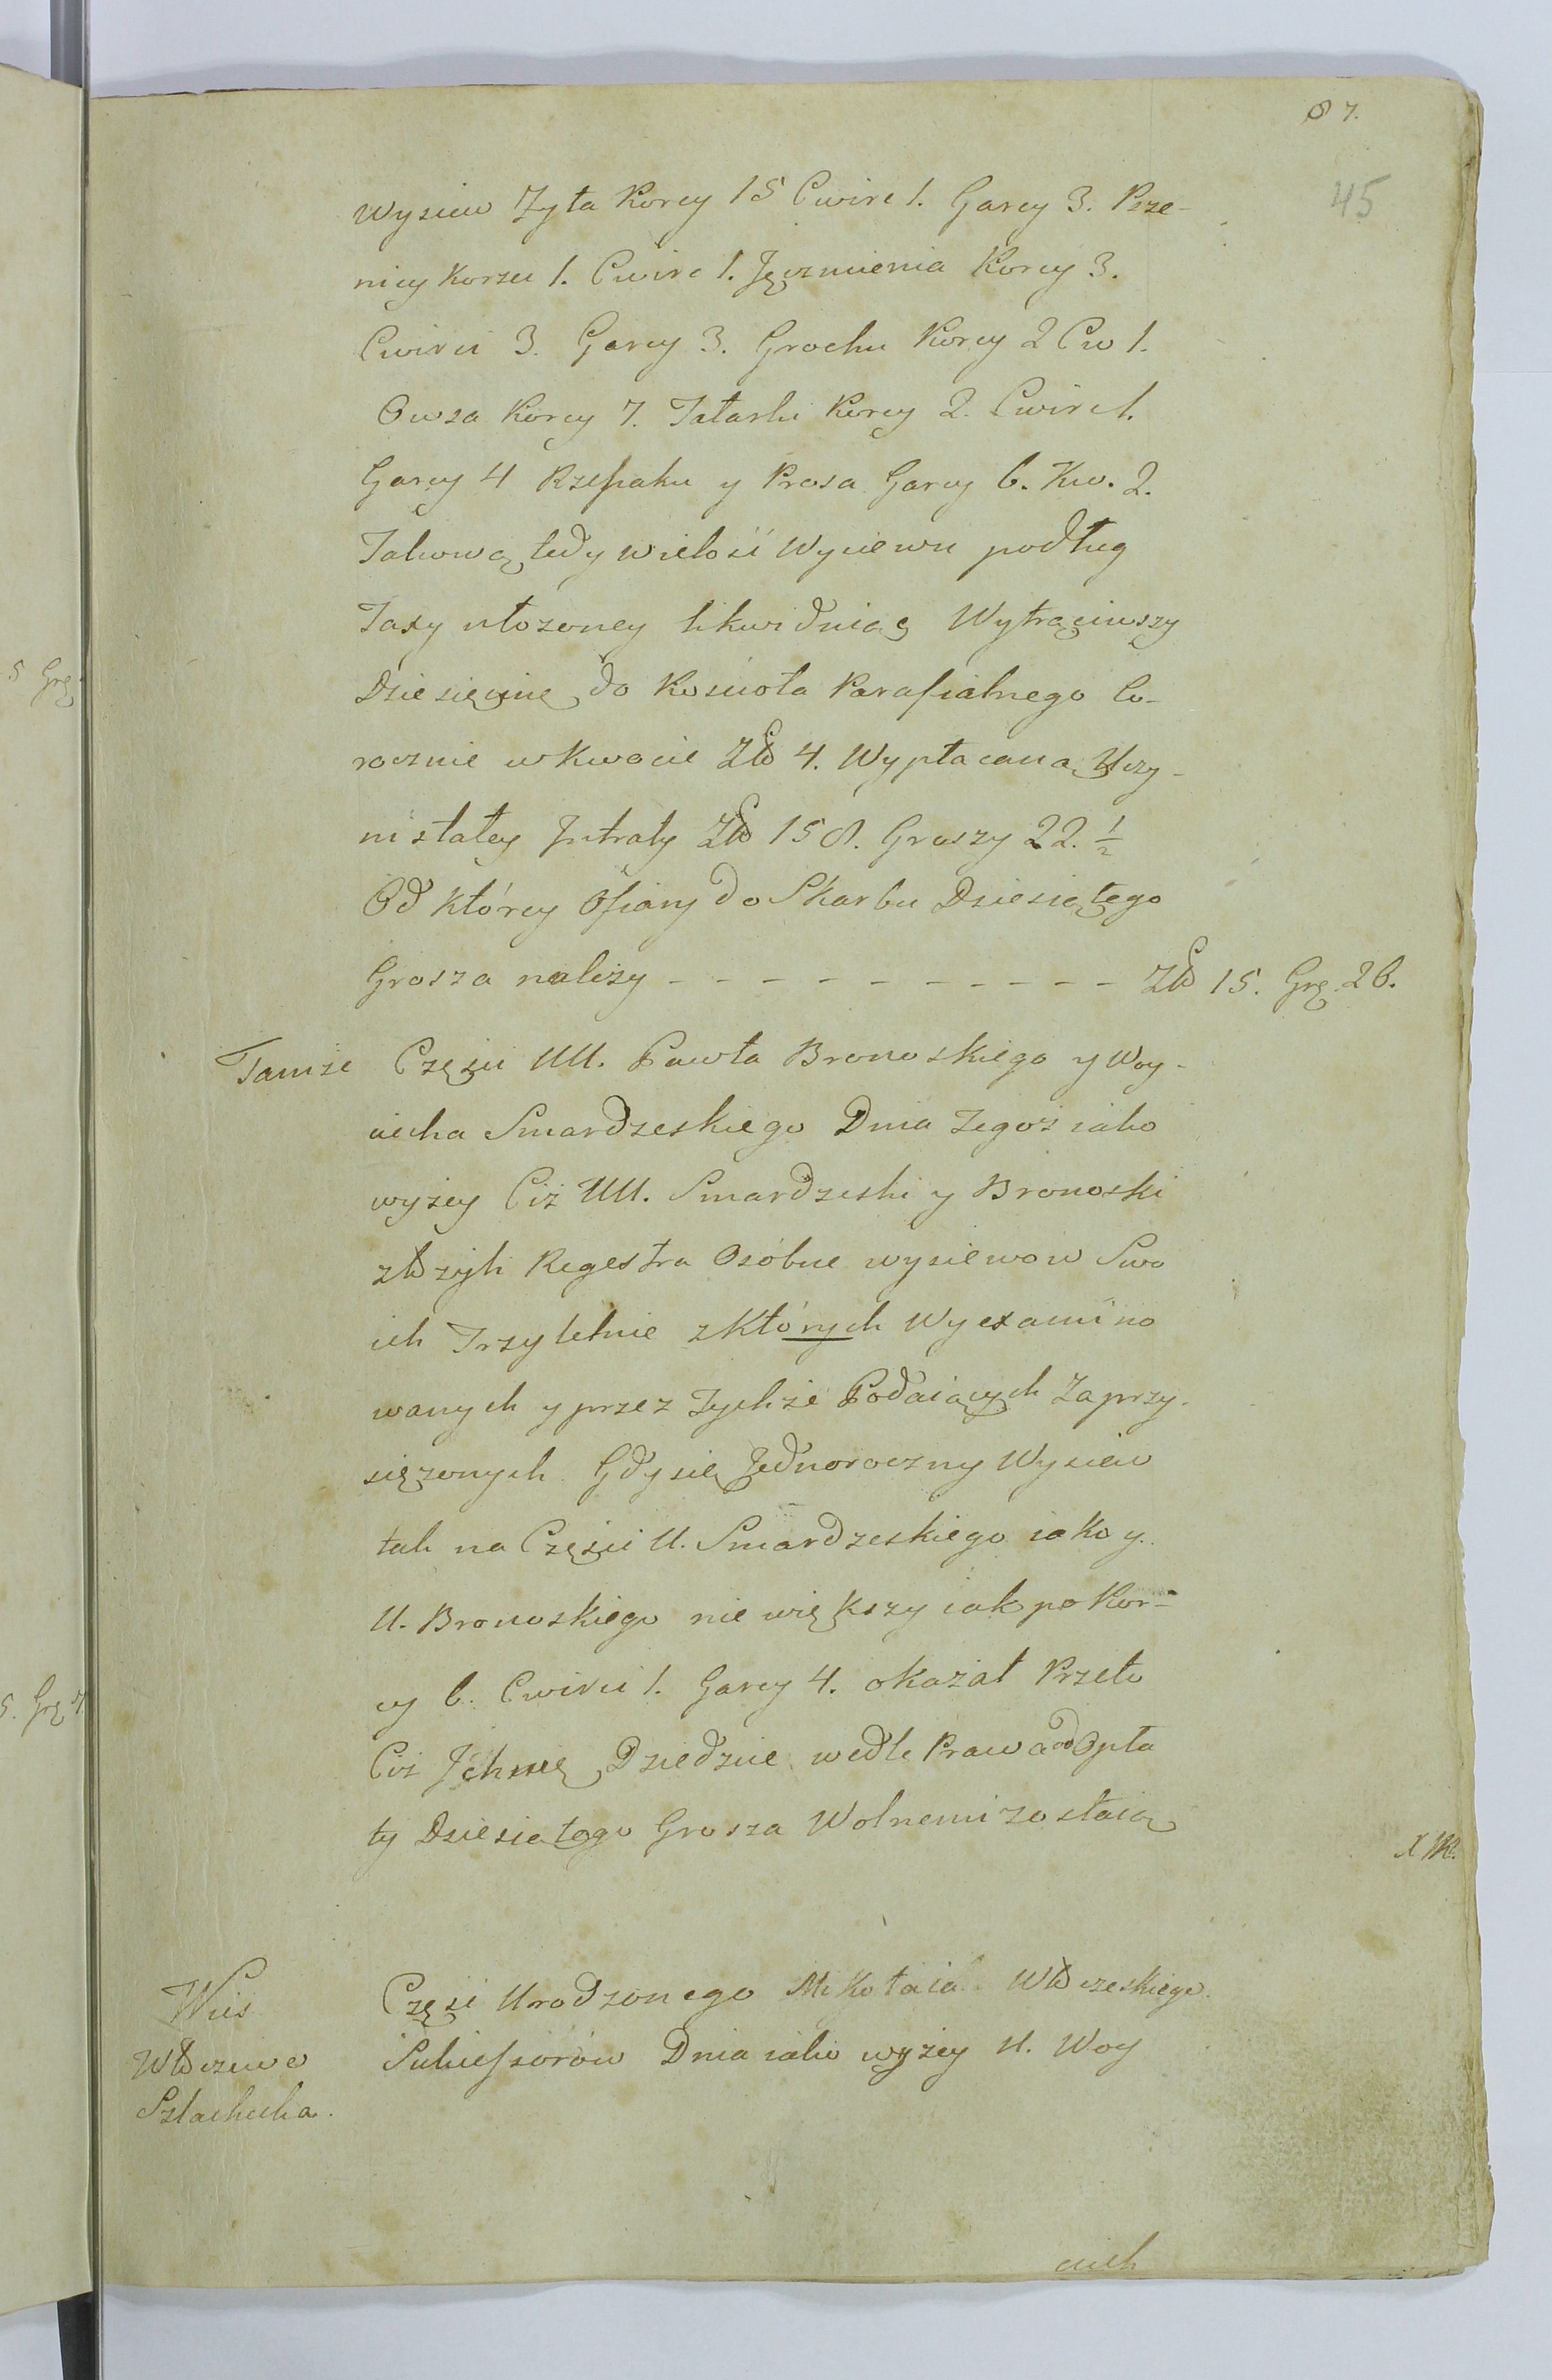 87.
45
Wysiew Zyta Korcy 15 Cwirc 1. Garcy 3. Psze-
nicy Korzec 1. Cwirc 1. Jęczmienia Korcy 3.
Cwirci 3. Garcy 3. Grochu Korcy 2 Cw 1.
Owsa Korcy 7. Tatarki Korcy 2. Cwirc 1.
Garcy 4 Rzepaku y Prosa Garcy 6. Kw. 2.
Takową tedy wielość Wysiewu podług
Taxy ułozoney likwiduiąc Wytrąciwszy
Dziesięcinę do Kościoła Parafialnego Co-
rocznie w Kwocie Zło 4. Wypłacaną Uczy-
ni stałey Jntraty Zło 158. Groszy 22. ½
Od którey Ofiary do Skarbu Dziesiątego
Grosza nalezy - - - - - - - - - - - Zło 15. Grę 26.
Tamże Części UU. Pawła Bronoskiego y Woy-
ciecha Smardzeskiego Dnia Tegoż iako
wyżey Ciż UU. Smardzeski y Bronoski
złożyli Regestra Osóbne wysiewow Swo
ich Trzyletnie z Których Wyexamino
wanych y przez Tychże Podaiących Zaprzy-
siężonych Gdy się Jednoroczny Wysiew
tak na Części U. Smardzeskiego iako y
U. Bronoskiego nie większy iak po Kor-
cy 6. Cwirci 1. Garcy 4. okazał Przeto
Ciż Jchmć Dziedzice wedle Prawa od Opła
ty Dziesiątego Grosza Wolnemi zostaią
Wieś
Włoczewo
Szlachecka.
Części Urodzonego Mikołaia Włoczeskiego
Sukcessorów Dnia iako wyżey U. Woy
ciech